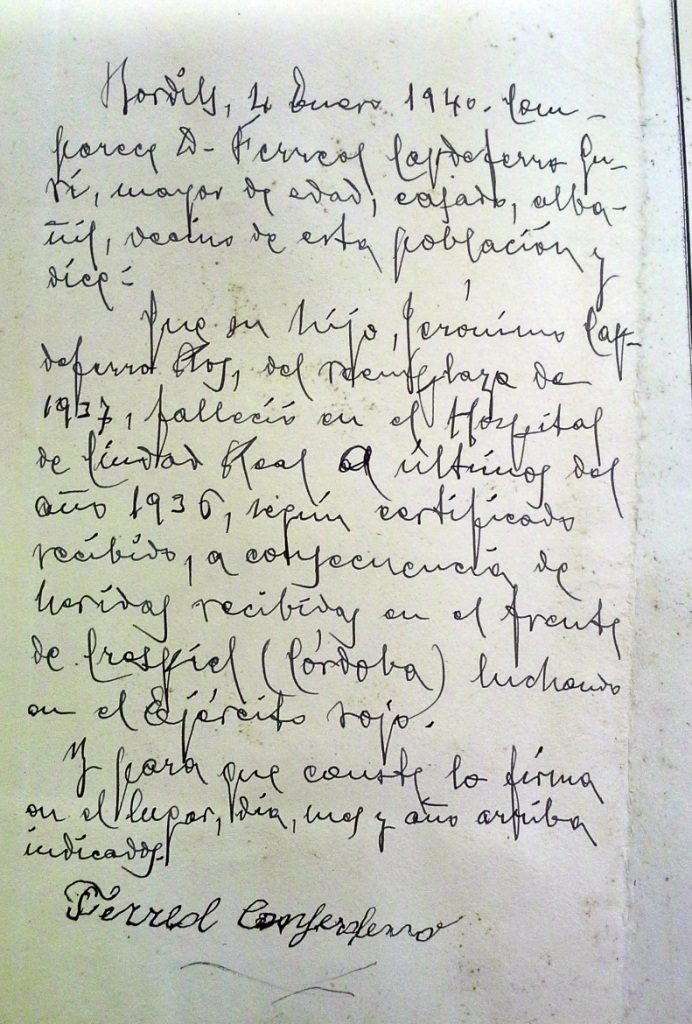 Bordils, 4 Enero 1940. Com-
parece D. Ferreol Capdeferro Gu-
rí, mayor de edad, casado, alba-
ñil, vecino de esta población y
dice:
Que su hijo, Jerónimo Cap-
deferro Ros, del reemplazo de
1937, falleció en el Hospital
de Ciudad Real a últimos del
año 1936, según certificado
recibido, a consecuencia de
heridas recibidas en el frente
de Crespiel (Córdoba) luchando
en el Ejército rojo.
Y para que conste lo firma
en el lugar, día, mes y año arriba
indicados.
Ferreol